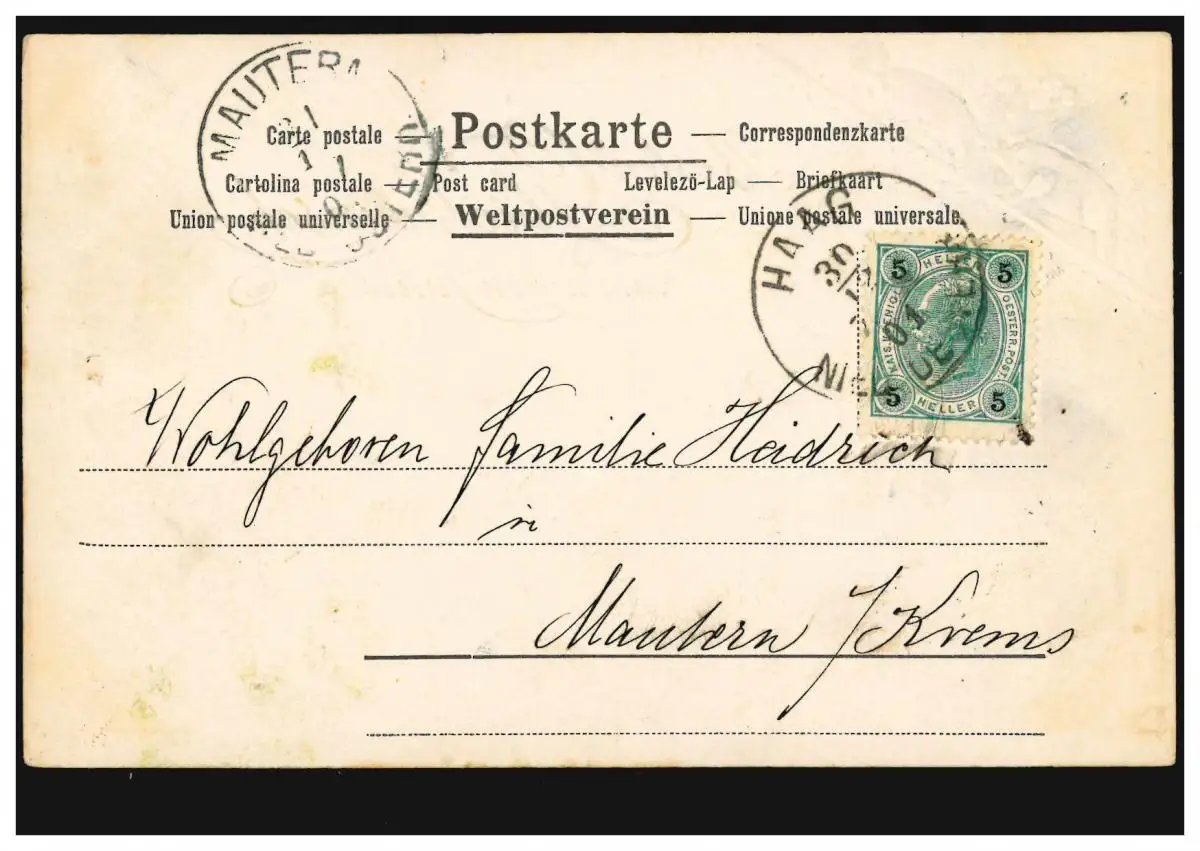 MAUTERN
Carte postale — Postkarte — Correspondenzkarte
Cartolina postale — Post card Levelezö-Lap — Briefkaart
Union postale universelle — Weltpostverein — Unione postale universale
HAAG
30
01
5 HELLER 5
KAIS. KÖNIGL. OESTERR. POST.
5 HELLER 5
Wohlgeboren Familie Heidrich
in
Mautern / Krems